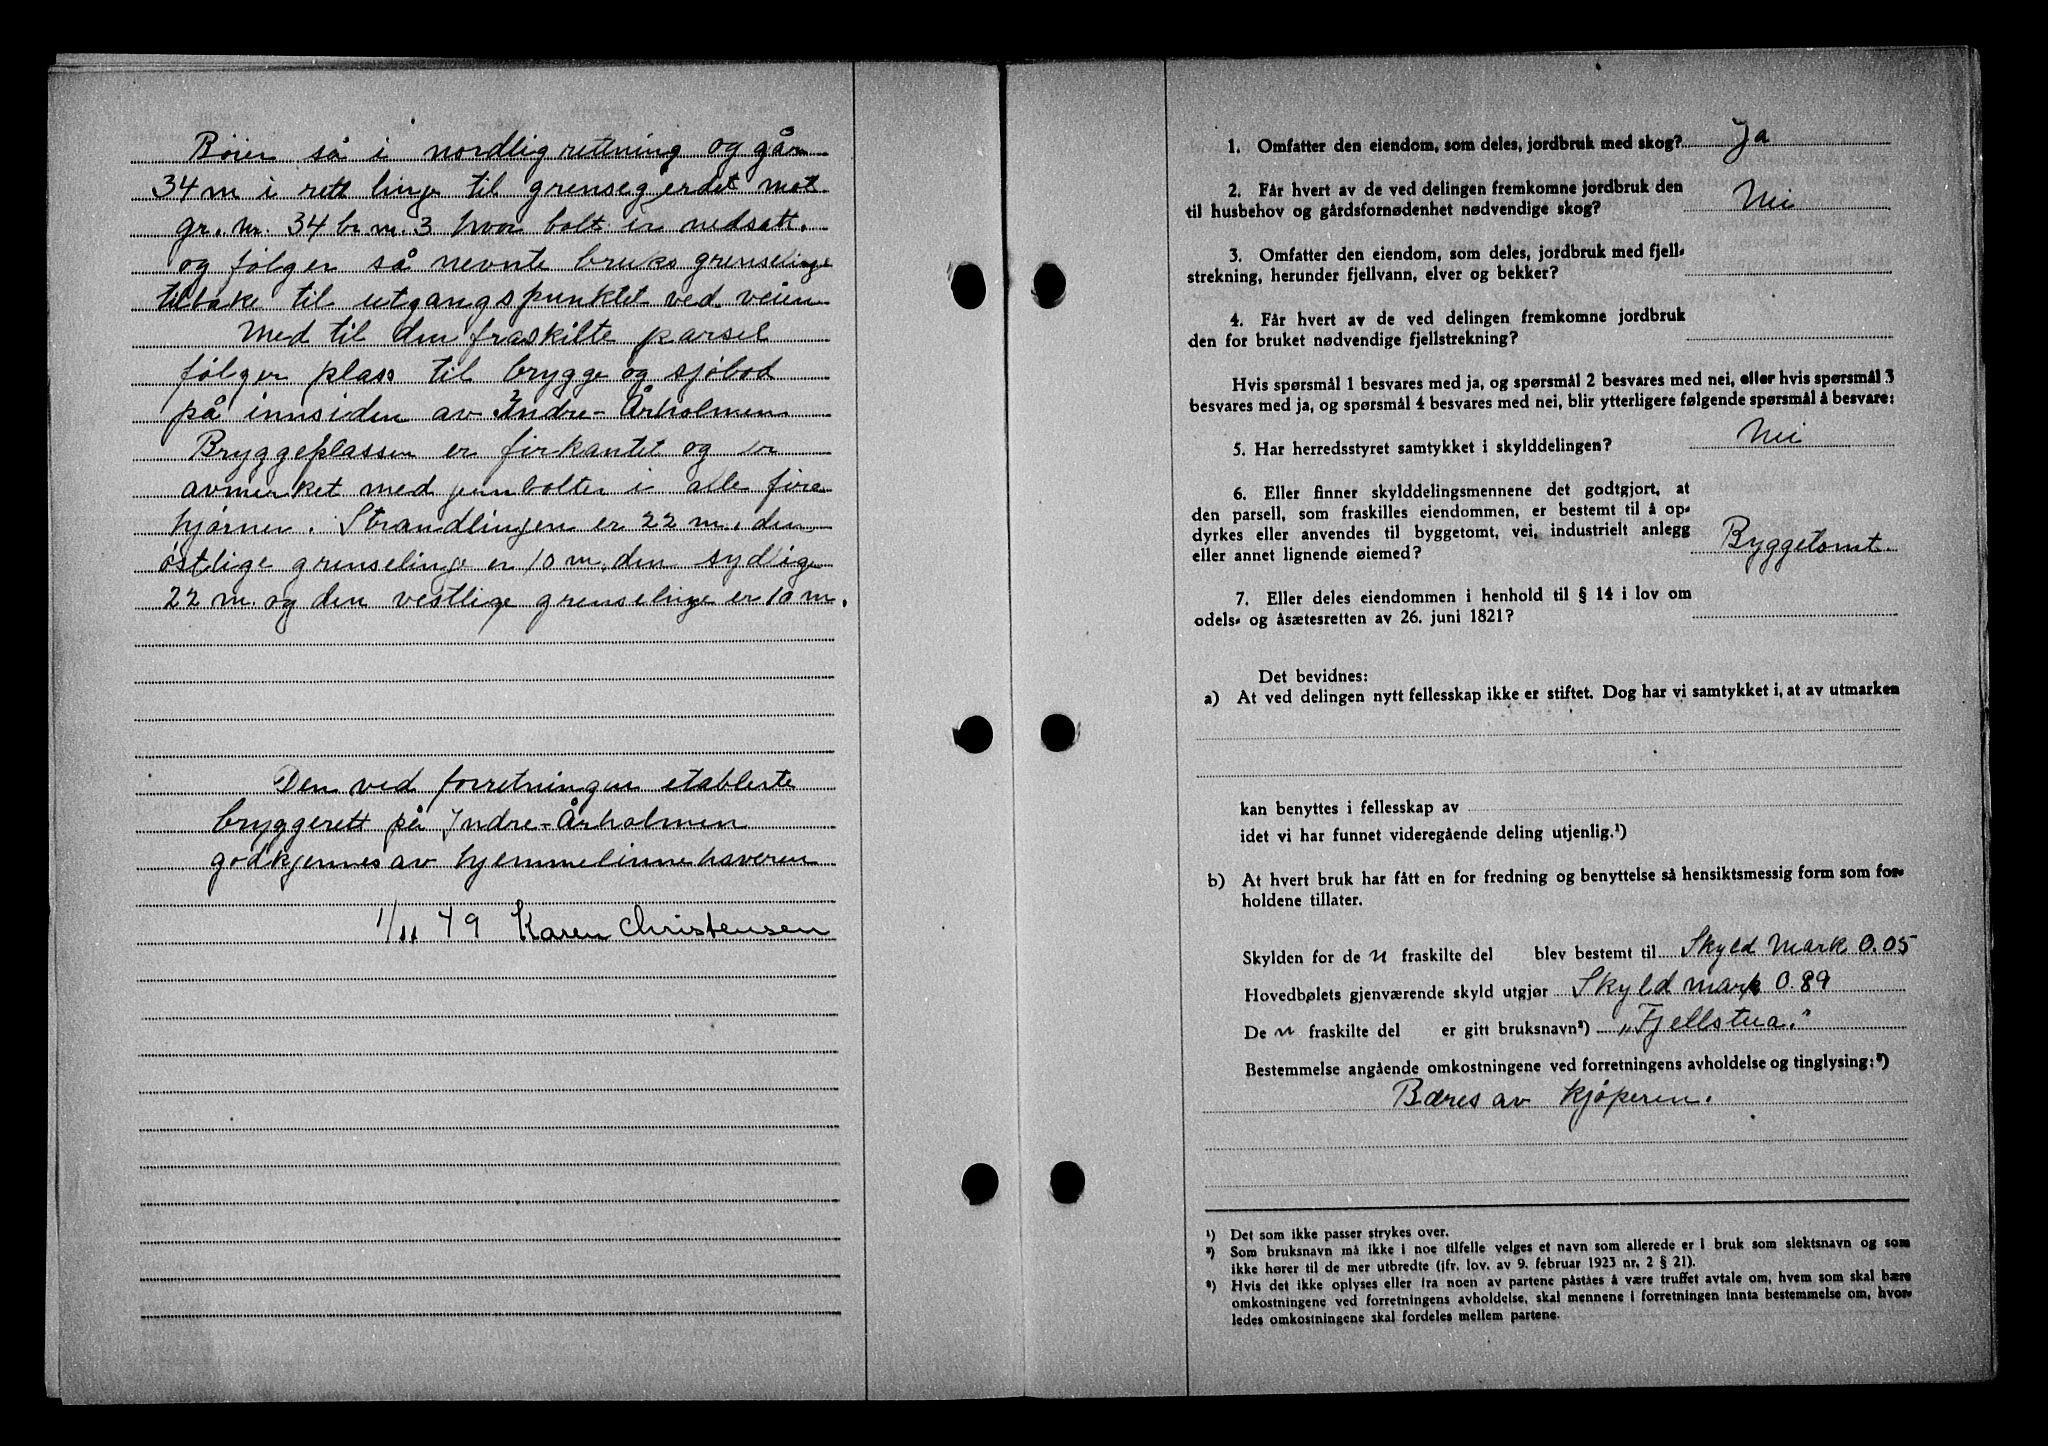 Bøier så i nordlig rettning og går
34 m i rett linje til grensegjerdet mot
gr. nr. 34 br. nr. 3 hvor bolt er nedsatt.
og følger så nevnte bruks grenselinje
tilbake til utgangspunktet ved veien
Med til den fraskilte parsel
følger plass til brygge og sjøbod
på innsiden av Indre-Årholmen
Bryggeplassen er firkantet og er
avmerket med jernbolter i alle fire
hjørner. Strandlinjen er 22 m, den
østlige grenselinje er 10 m, den sydlige
22 m og den vestlige grenselinje er 10 m.
Den ved forretningen etablerte
bryggerett på Indre-Årholmen
godkjennes av hjemmelinnehaveren
1/11 49 Karen Christensen
1. Omfatter den eiendom, som deles, jordbruk med skog? Ja
2. Får hvert av de ved delingen fremkomne jordbruk den
til husbehov og gårdsfornødenhet nødvendige skog? Nei
3. Omfatter den eiendom, som deles, jordbruk med fjell-
strekning, herunder fjellvann, elver og bekker?
4. Får hvert av de ved delingen fremkomne jordbruk
den for bruket nødvendige fjellstrekning?
Hvis spørsmål 1 besvares med ja, og spørsmål 2 besvares med nei, eller hvis spørsmål 3
besvares med ja, og spørsmål 4 besvares med nei, blir ytterligere følgende spørsmål å besvare:
5. Har herredsstyret samtykket i skylddelingen? Nei
6. Eller finner skylddelingsmennene det godtgjort, at
den parsell, som fraskilles eiendommen, er bestemt til å op-
dyrkes eller anvendes til byggetomt, vei, industrielt anlegg
eller annet lignende øiemed? Byggetomt.
7. Eller deles eiendommen i henhold til § 14 i lov om
odels- og åsætesretten av 26. juni 1821?
Det bevidnes:
a) At ved delingen nytt fellesskap ikke er stiftet. Dog har vi samtykket i, at av utmarken
kan benyttes i fellesskap av
idet vi har funnet videregående deling utjenlig.¹)
b) At hvert bruk har fått en for fredning og benyttelse så hensiktsmessig form som for-
holdene tillater.
Skylden for de n fraskilte del blev bestemt til Skyld mark 0.05
Hovedbølets gjenværende skyld utgjør Skyld mark 0.89
De n fraskilte del er gitt bruksnavn²) „Fjellstua."
Bestemmelse angående omkostningene ved forretningens avholdelse og tinglysing:³)
Bæres av kjøperen.
¹) Det som ikke passer strykes over.
²) Som bruksnavn må ikke i noe tilfelle velges et navn som allerede er i bruk som slektsnavn og som
ikke hører til de mer utbredte (jfr. lov. av 9. februar 1923 nr. 2 § 21).
³) Hvis det ikke oplyses eller fra noen av partene påståes å være truffet avtale om, hvem som skal bære
omkostningene ved forretningens avholdelse, skal mennene i forretningen innta bestemmelse om, hvor-
ledes omkostningene skal fordeles mellem partene.